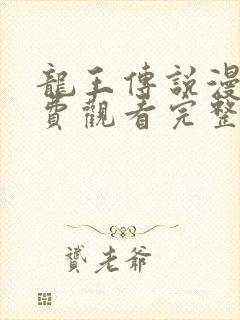 龍王傳說漫
費觀看完整
贇老爺